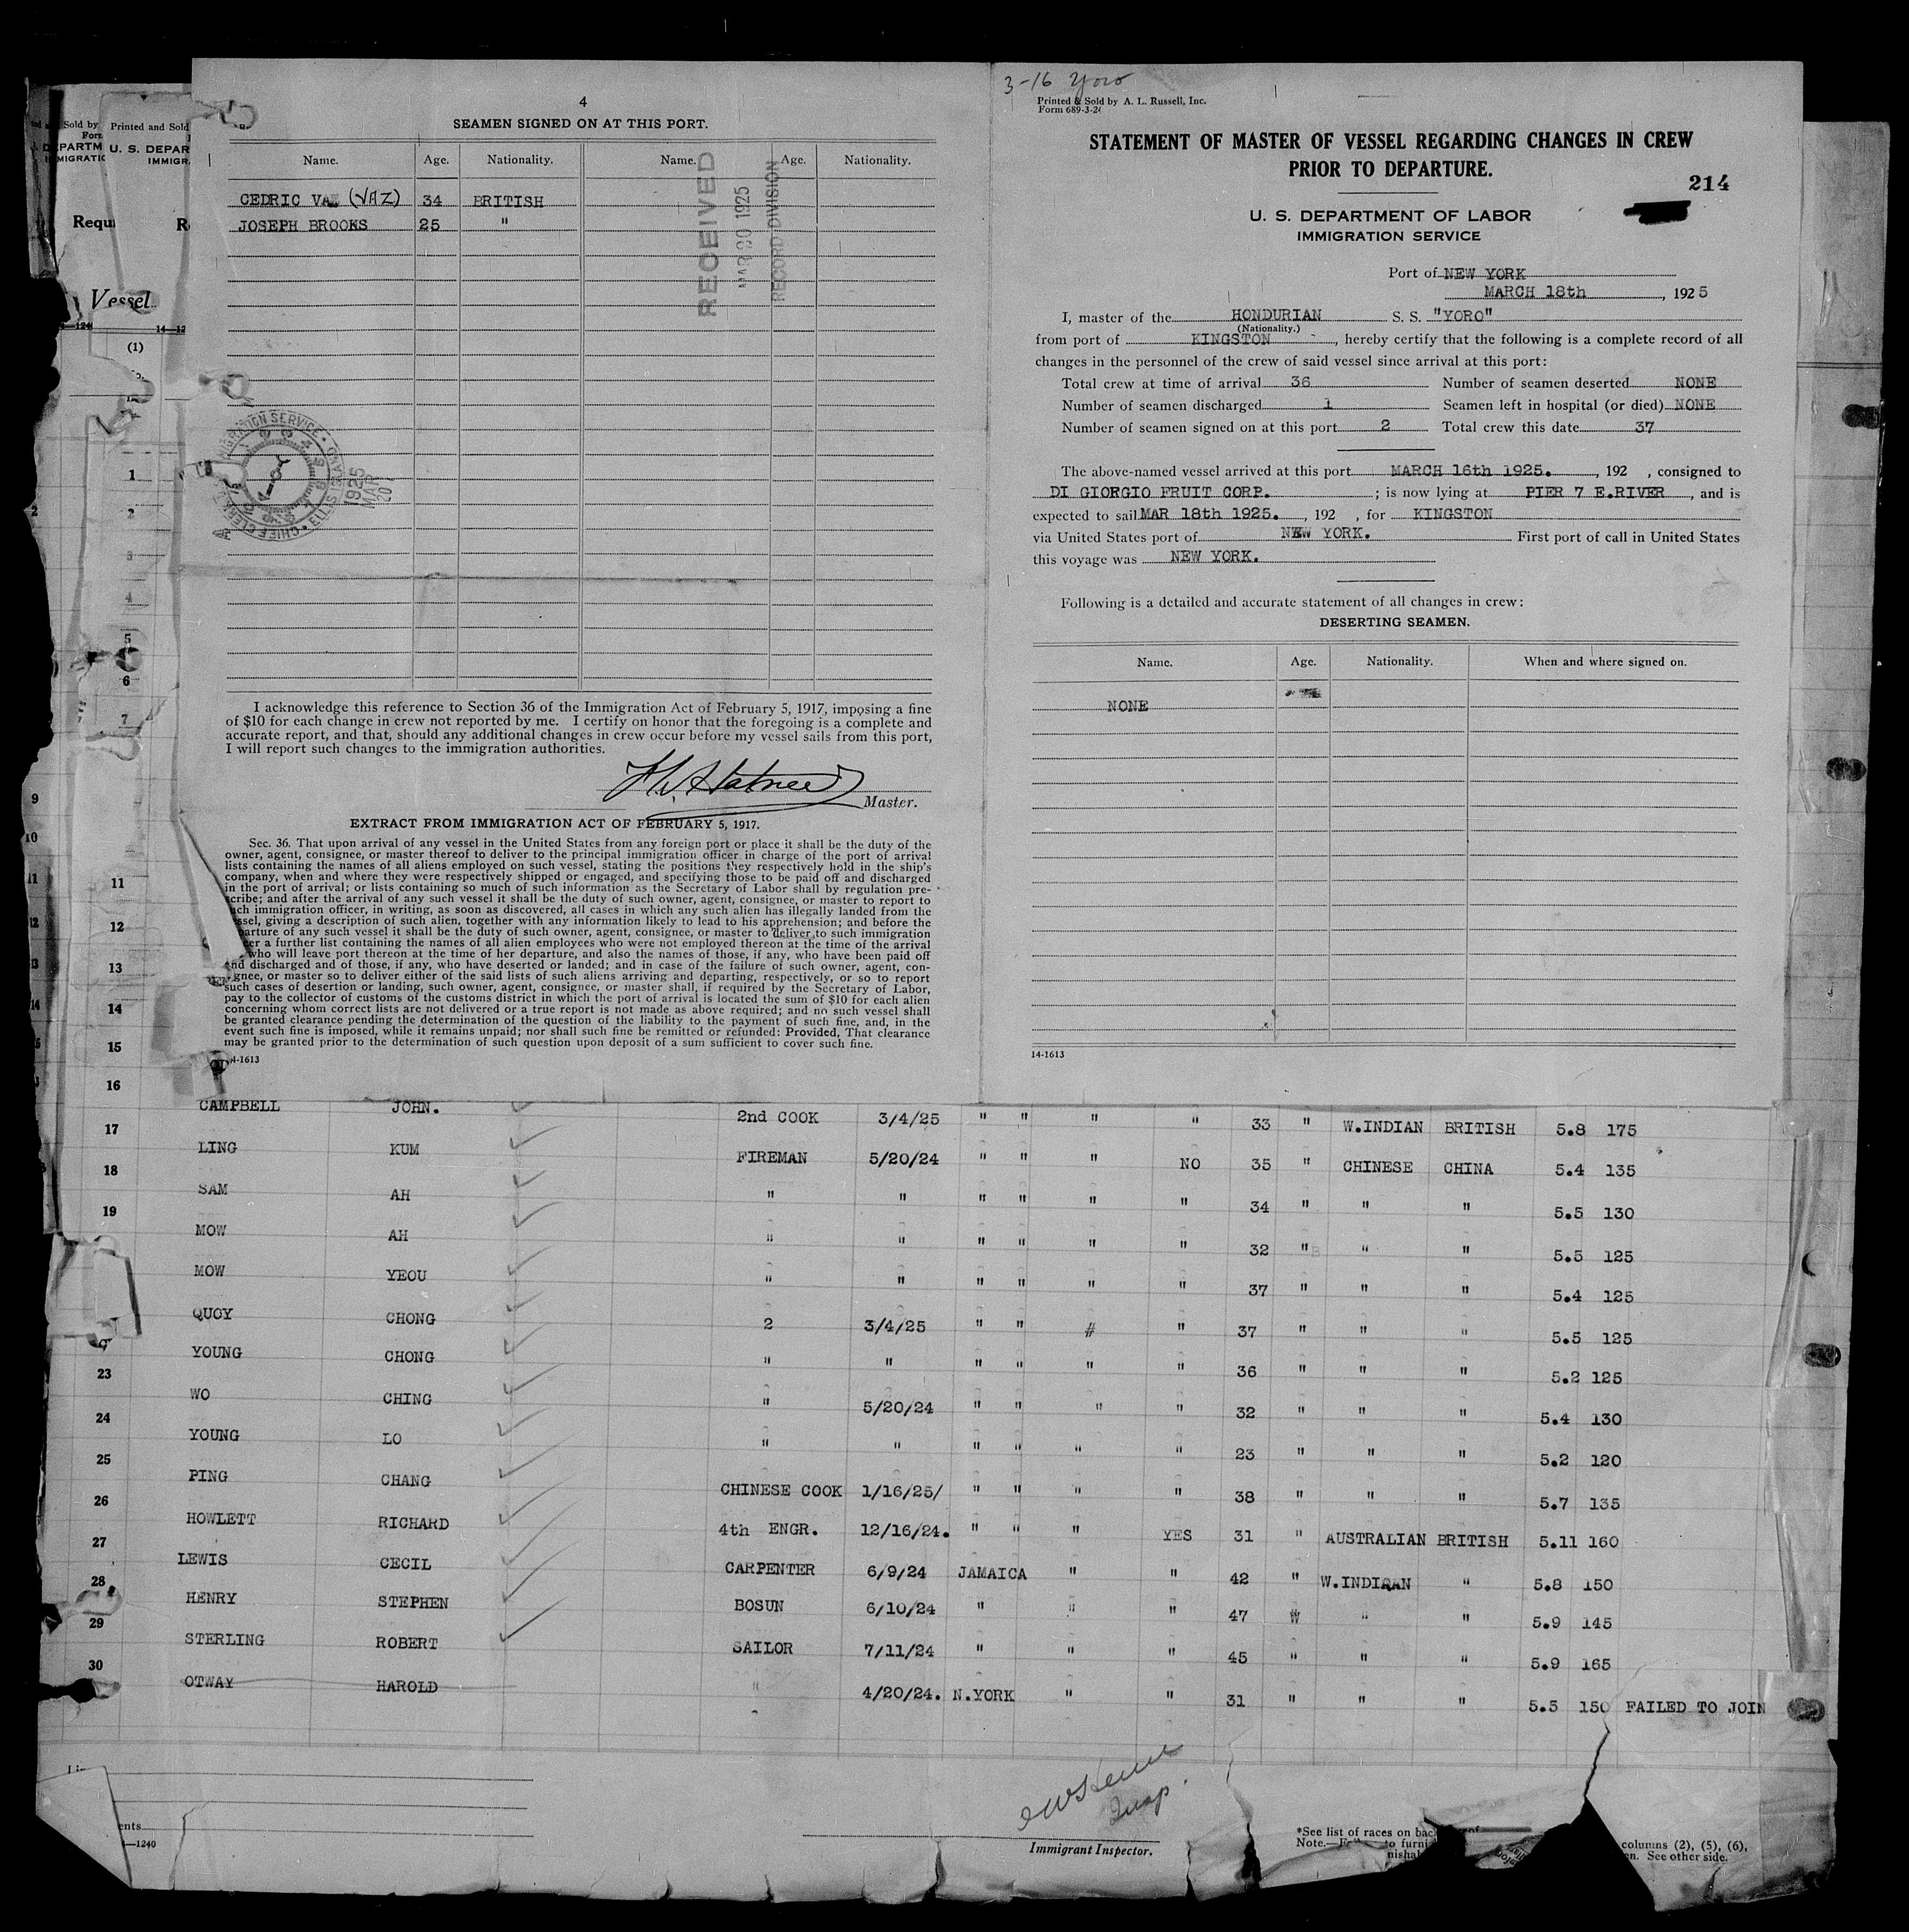 4
SEAMEN SIGNED ON AT THIS PORT.
Name. Age. Nationality. Name. Age. Nationality.
CEDRIC VA (VAZ) 34 BRITISH
JOSEPH BROOKS 25 "
RECEIVED
MAR 30 1925
RECORD DIVISION
IMMIGRATION SERVICE
ELLIS ISLAND
CHIEF CLERK
1925
MAR
20
I acknowledge this reference to Section 36 of the Immigration Act of February 5, 1917, imposing a fine
of $10 for each change in crew not reported by me. I certify on honor that the foregoing is a complete and
accurate report, and that, should any additional changes in crew occur before my vessel sails from this port,
I will report such changes to the immigration authorities.
Master.
EXTRACT FROM IMMIGRATION ACT OF FEBRUARY 5, 1917.
Sec. 36. That upon arrival of any vessel in the United States from any foreign port or place it shall be the duty of the
owner, agent, consignee, or master thereof to deliver to the principal immigration officer in charge of the port of arrival
lists containing the names of all aliens employed on such vessel, stating the positions they respectively hold in the ship's
company, when and where they were respectively shipped or engaged, and specifying those to be paid off and discharged
in the port of arrival; or lists containing so much of such information as the Secretary of Labor shall by regulation pre-
scribe; and after the arrival of any such vessel it shall be the duty of such owner, agent, consignee, or master to report to
such immigration officer, in writing, as soon as discovered, all cases in which any such alien has illegally landed from the
vessel, giving a description of such alien, together with any information likely to lead to his apprehension; and before the
departure of any such vessel it shall be the duty of such owner, agent, consignee, or master to deliver to such immigration
officer a further list containing the names of all alien employees who were not employed thereon at the time of the arrival
who will leave port thereon at the time of her departure, and also the names of those, if any, who have been paid off
and discharged and of those, if any, who have deserted or landed; and in case of the failure of such owner, agent, con-
signee, or master so to deliver either of the said lists of such aliens arriving and departing, respectively, or so to report
such cases of desertion or landing, such owner, agent, consignee, or master shall, if required by the Secretary of Labor,
pay to the collector of customs of the customs district in which the port of arrival is located the sum of $10 for each alien
concerning whom correct lists are not delivered or a true report is not made as above required; and no such vessel shall
be granted clearance pending the determination of the question of the liability to the payment of such fine, and, in the
event such fine is imposed, while it remains unpaid; nor shall such fine be remitted or refunded: Provided, That clearance
may be granted prior to the determination of such question upon deposit of a sum sufficient to cover such fine.
14-1613
3-16 Yoro
Printed & Sold by A. L. Russell, Inc.
Form 689-3-24
STATEMENT OF MASTER OF VESSEL REGARDING CHANGES IN CREW
PRIOR TO DEPARTURE.
214
U. S. DEPARTMENT OF LABOR
IMMIGRATION SERVICE
Port of NEW YORK
MARCH 18th, 1925
I, master of the HONDURIAN S. S. "YORO"
(Nationality.)
from port of KINGSTON, hereby certify that the following is a complete record of all
changes in the personnel of the crew of said vessel since arrival at this port:
Total crew at time of arrival 36 Number of seamen deserted NONE
Number of seamen discharged 1 Seamen left in hospital (or died) NONE
Number of seamen signed on at this port 2 Total crew this date 37
The above-named vessel arrived at this port MARCH 16th 1925., 192 , consigned to
DI GIORGIO FRUIT CORP. ; is now lying at PIER 7 E.RIVER, and is
expected to sail MAR 18th 1925., 192 , for KINGSTON
via United States port of NEW YORK. First port of call in United States
this voyage was NEW YORK.
Following is a detailed and accurate statement of all changes in crew:
DESERTING SEAMEN.
Name. Age. Nationality. When and where signed on.
NONE
14-1613
Sold by Printed and Sold
U. S. DEPAR
IMMIGR
Requ R
Vessel
14-12
(1)
1
2
3
4
5
6
7
9
10
11 11
12 12
13 13
14 14
15
16
CAMPBELL JOHN. 2nd COOK 3/4/25 " " " " 33 " W.INDIAN BRITISH 5.8 175
17 LING KUM FIREMAN 5/20/24 " " " NO 35 " CHINESE CHINA 5.4 135
18 SAM AH " " " " " " 34 " " " 5.5 130
19 MOW AH " " " " " " 32 " " " 5.5 125
MOW YEOU " " " " " " 37 " " " 5.4 125
QUOY CHONG 2 3/4/25 " " # " 37 " " " 5.5 125
YOUNG CHONG " " " " " " 36 " " " 5.2 125
23 WO CHING " 5/20/24 " " " " 32 " " " 5.4 130
24 YOUNG LO " " " " " " 23 " " " 5.2 120
25 PING CHANG CHINESE COOK 1/16/25/ " " " " 38 " " " 5.7 135
26 HOWLETT RICHARD 4th ENGR. 12/16/24. " " " YES 31 " AUSTRALIAN BRITISH 5.11 160
27 LEWIS CECIL CARPENTER 6/9/24 JAMAICA " " 42 " W.INDIAAN " 5.8 150
28 HENRY STEPHEN BOSUN 6/10/24 " " " 47 " " " 5.9 145
29 STERLING ROBERT SAILOR 7/11/24 " " " 45 " " " 5.9 165
30 OTWAY HAROLD " 4/20/24. N.YORK " " 31 " " " 5.5 150 FAILED TO JOIN
Insp.
Immigrant Inspector.
ents
—1240
*See list of races on back
Note.— to furni
columns (2), (5), (6),
See other side.